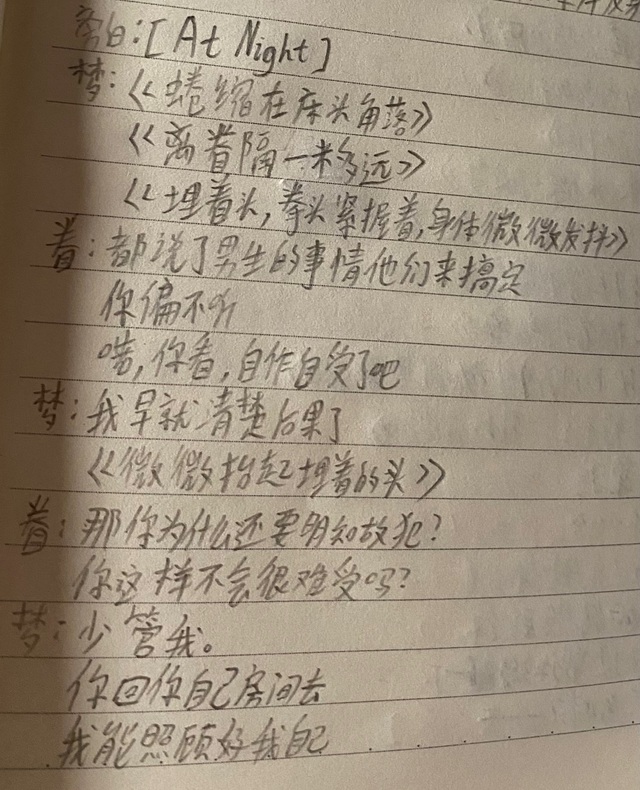 旁白:[At Night]
梦:《蜷缩在床头角落》
《离眷隔一米多远》
《埋着头,拳头紧握着,身体微微发抖》
眷:都说了男生的事情他们来搞定
你偏不听
喏,你看,自作自受了吧
梦:我早就清楚后果了
《微微抬起埋着的头》
眷:那你为什么还要明知故犯?
你这样不会很难受吗?
梦:少管我。
你回你自己房间去
我能照顾好我自己